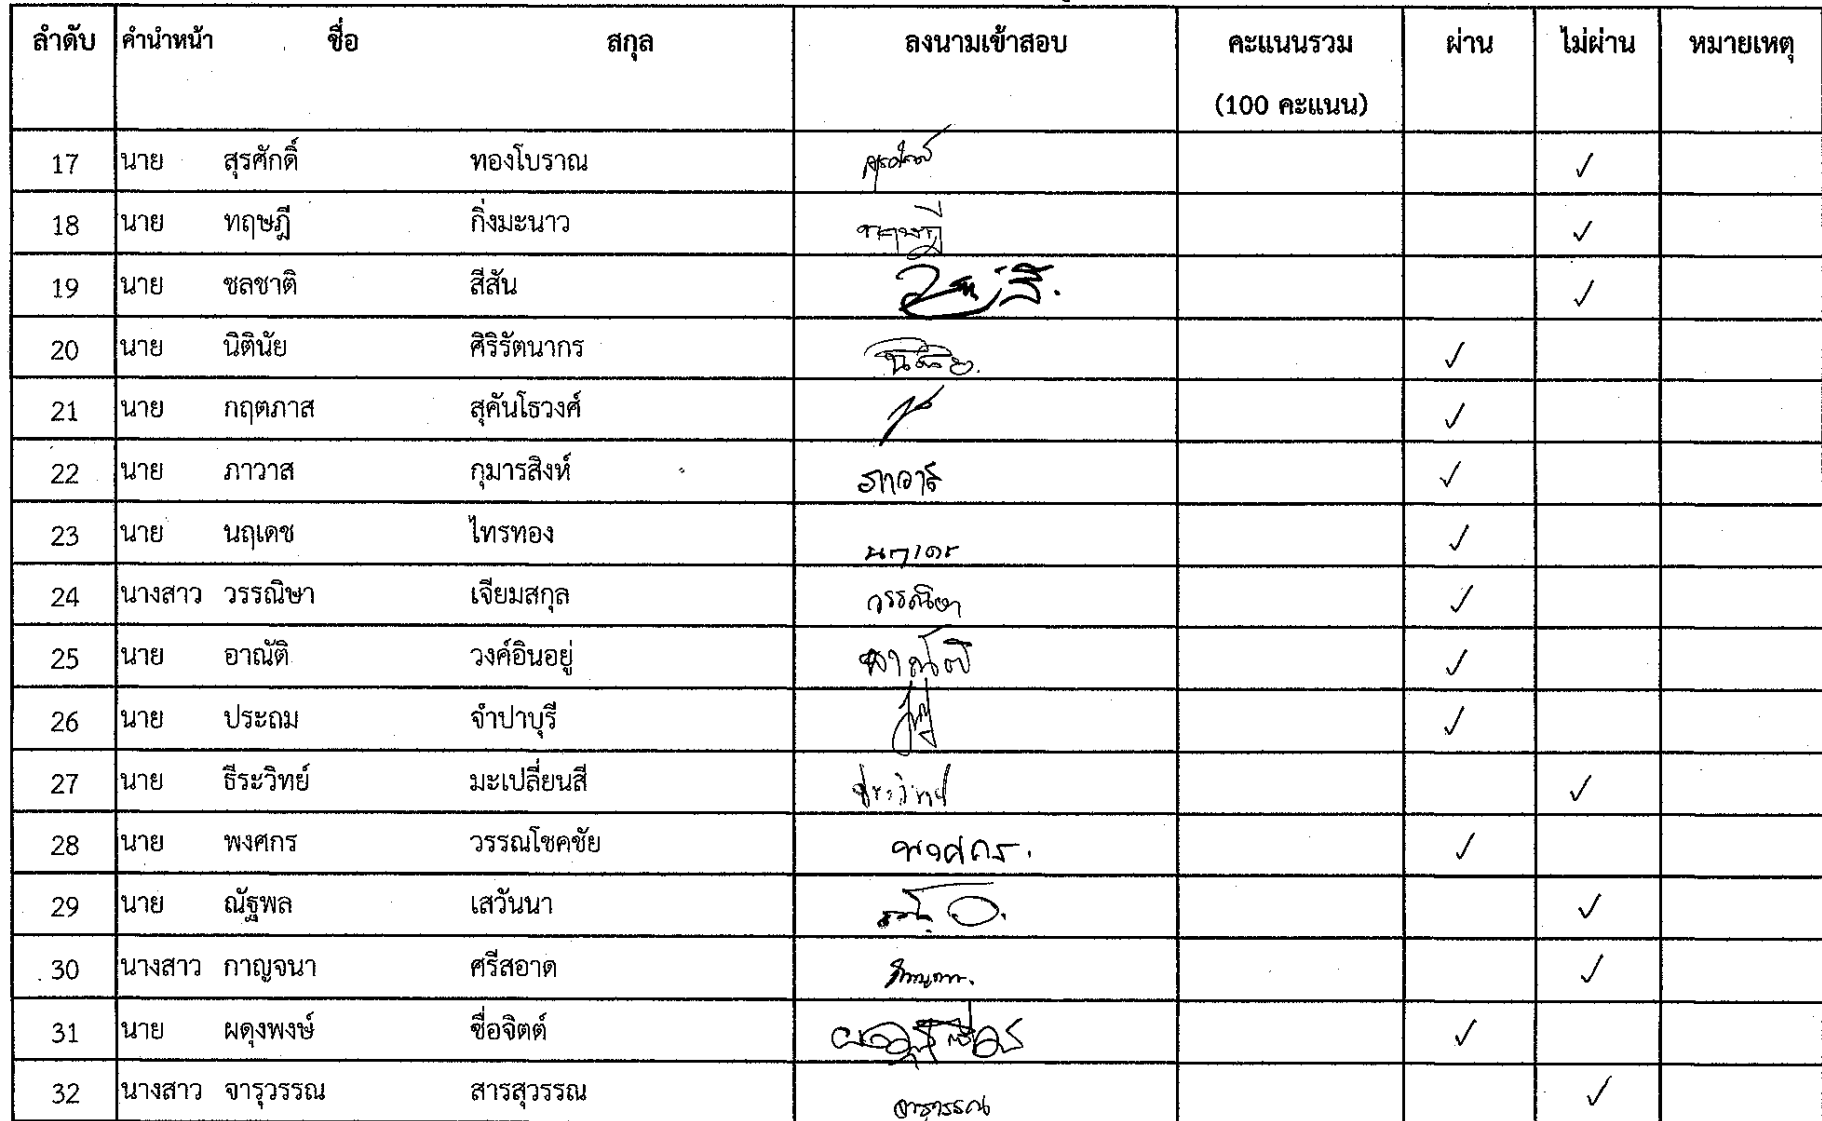 ลำดับ คำนำหน้า ชื่อ สกุล ลงนามเข้าสอบ คะแนนรวม ผ่าน ไม่ผ่าน หมายเหตุ
(100 คะแนน)
17 นาย สุรศักดิ์ ทองโบราณ สุรศักดิ์ ✓
18 นาย ทฤษฎี กิ่งมะนาว ทฤษฎี ✓
19 นาย ชลชาติ สีสัน ✓
20 นาย นิตินัย ศิริรัตนากร ✓
21 นาย กฤตภาส สุคันโธวงศ์ ✓
22 นาย ภาวาส กุมารสิงห์ ภาวาส ✓
23 นาย นฤเดช ไทรทอง นฤเดช ✓
24 นางสาว วรรณิษา เจียมสกุล วรรณิษา ✓
25 นาย อาณัติ วงค์อินอยู่ อาณัติ ✓
26 นาย ประถม จำปาบุรี ✓
27 นาย ธีระวิทย์ มะเปลี่ยนสี ธีระวิทย์ ✓
28 นาย พงศกร วรรณโชคชัย พงศกร. ✓
29 นาย ณัฐพล เสวันนา ✓
30 นางสาว กาญจนา ศรีสอาด กาญจนา. ✓
31 นาย ผดุงพงษ์ ซื่อจิตต์ ✓
32 นางสาว จารุวรรณ สารสุวรรณ จารุวรรณ ✓